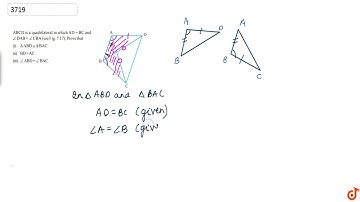 3719
ABCD is a quadrilateral in which AD = BC and
∠DAB = ∠CBA (see Fig. 7.17). Prove that
(i) ΔABD ≅ ΔBAC
(ii) BD = AC
(iii) ∠ABD = ∠BAC.
A
D
B
C
A
D
B
A
B
C
In △ ABD and △ BAC
AD = BC (given)
∠A = ∠B (giv